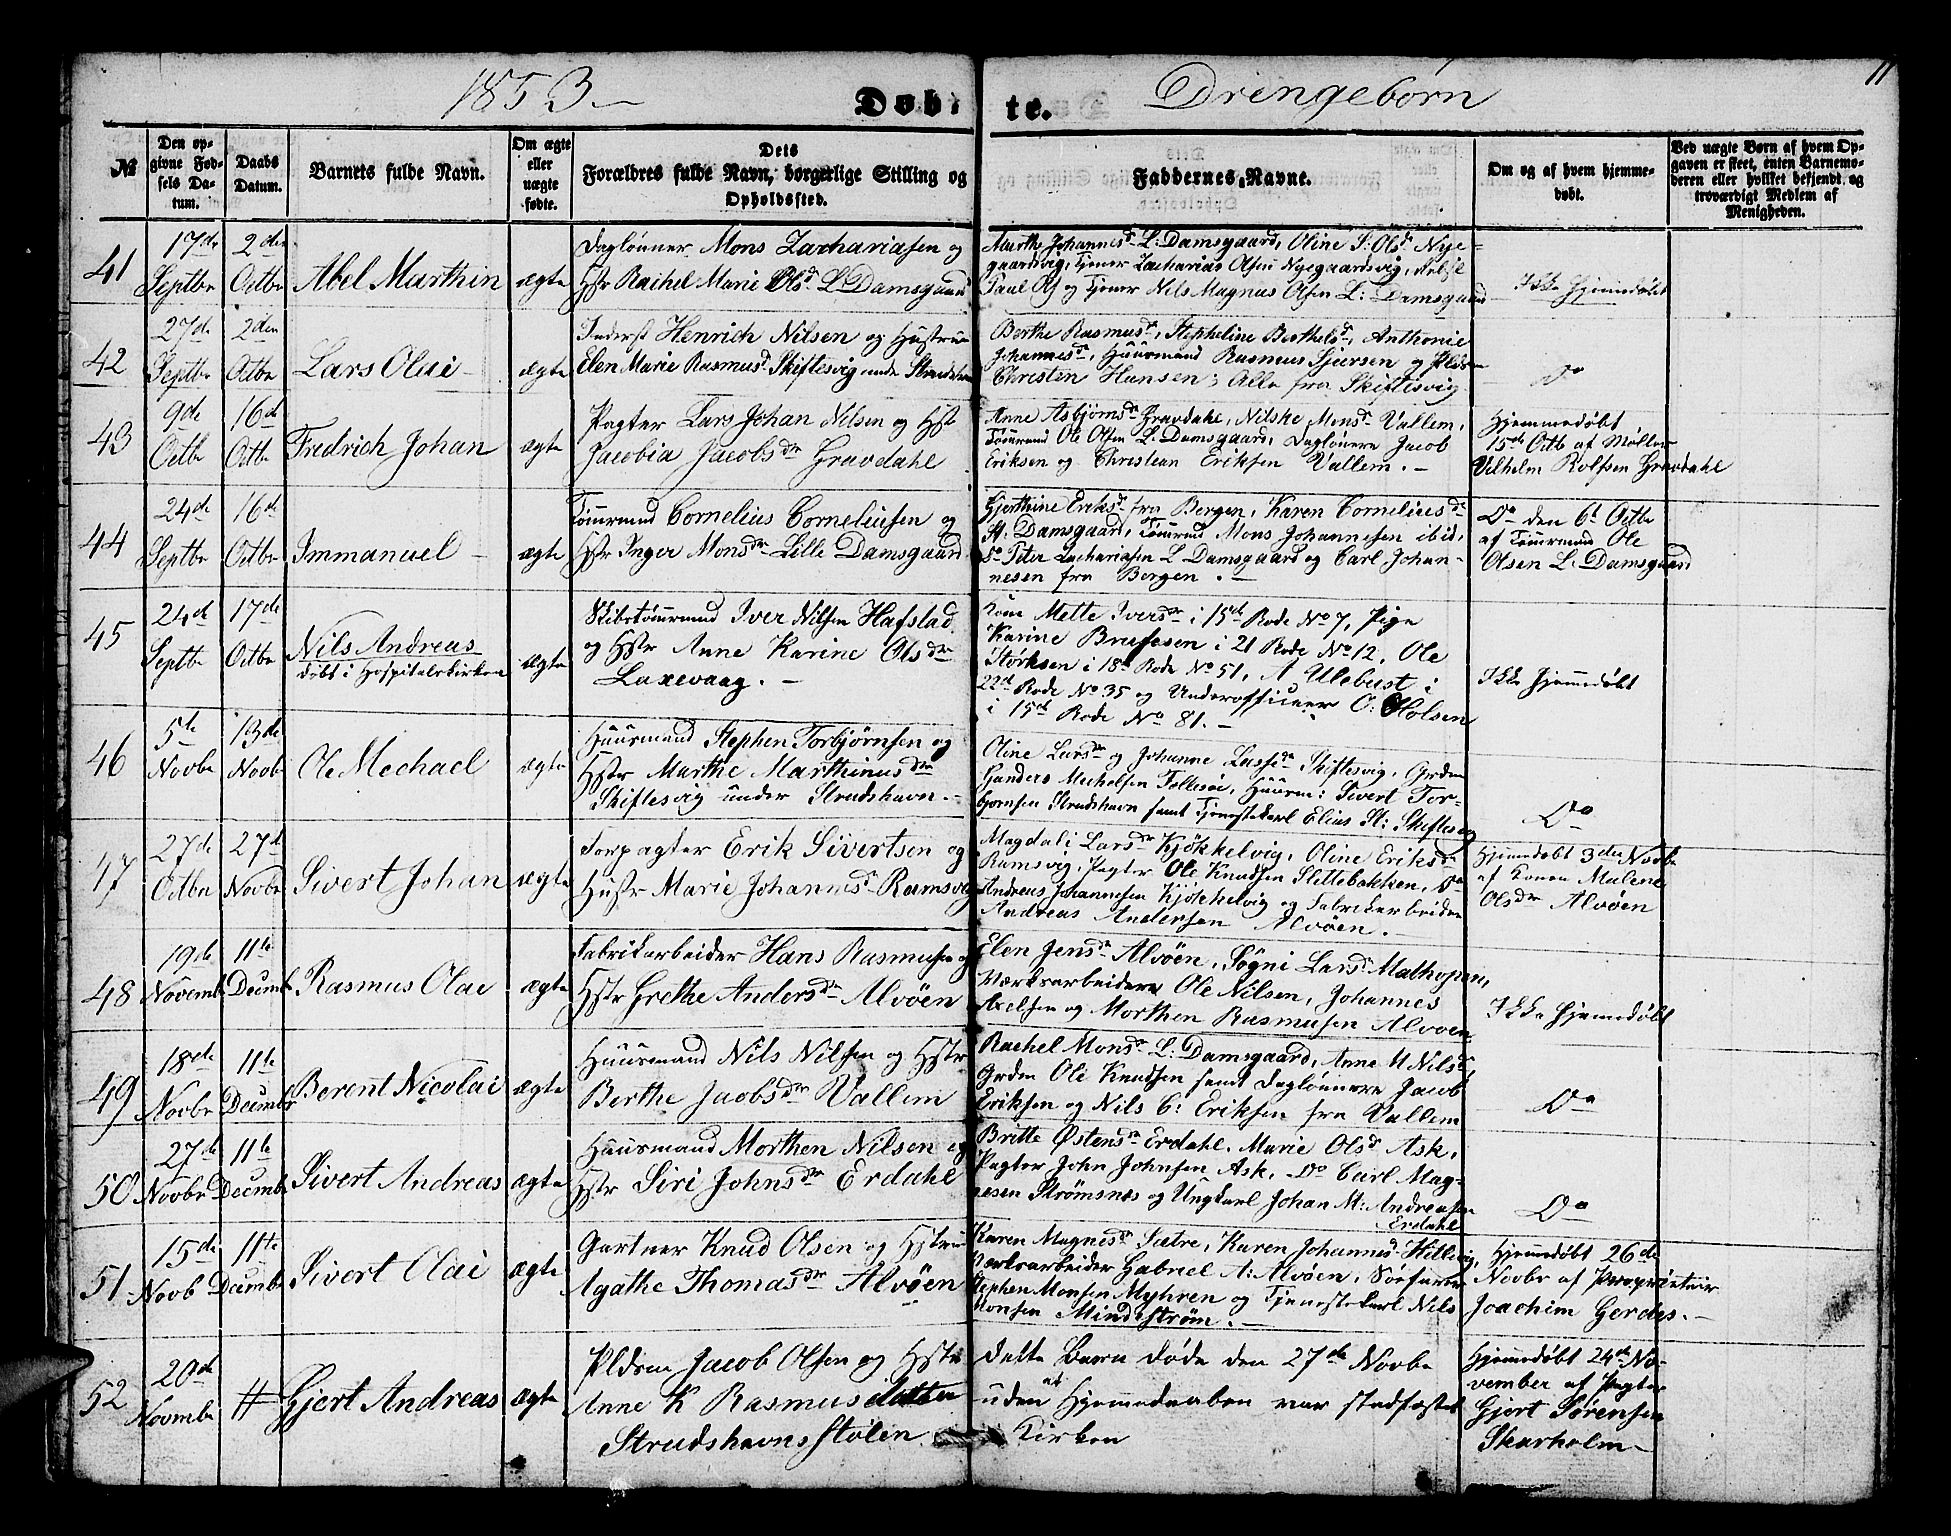 11
1853 Døbte. Drengebørn
№
Den op-
givne Fød-
sels Da-
tum.
Daabs
Datum.
Barnets fulde Navn.
Om ægte
eller
uægte
fødte.
Dets
Forældres fulde Navn, borgerlige Stilling og
Opholdssted.
Faddernes Navne.
Om og af hvem hjemme-
døbt.
Ved uægte Børn af hvem Op-
gaven er skeet, enten Barnemo-
deren eller hvilket bekjendt og
troværdigt Medlem af
Menigheden.
41
17de
Septbr
2den
Octbr
Abel Marthin
ægte
Daglønner Mons Zachariasen og
Hstr Rachel Marie Olsd. L Damsgaard
Marthe Johannesd. L: Damsgaard, Oline S: Olsd. Nye-
gaardsvig, Tjener Zacharias Olsen Nyegaardsvig,
Paul og Tjener Nils Magnus Olsen L: Damsgaard
Ikke hjemmedøbt
42
27de
Septbr
2den
Octbr
Lars Olai
ægte
Inderst Henrich Nilsen og Hustrue
Elen Marie Rasmusd. Skiftesvig unde Strudshavn
Berthe Rasmusd., Stepheline Berthelsd., Anthonie
Johannesd., Huusmand Rasmus Sjursen og Pldsm
Christen Hansen; Alle fra Skiftesvig
Do
43
9de
Octbr
16de
Octbr
Fredrich Johan
ægte
Pagter Lars Johan Nilsen og Hst
Jacobia Jacobsdr Gravdahl
Anne Asbjørnsd. Gravdahl, Nilske Monsd. Vallem,
Tømrmd Ole Olsen L: Damsgaard, Daglønere Jacob
Eriksen og Christian Eriksen Vallem.
Hjemmedøbt
15de Octb af Møller
Vilhelm Rolfsen Gravdahl
44
24de
Septbr
16de
Octbr
Immanuel
ægte
Tømrmand Cornelius Corneliusen og
Hstr Inger Monsdr Lille Damsgaard
Gjerthine Eriksd. fra Bergen, Karen Corneliusd.
St: Damsgaard, Tømrmd Mons Johannesen ibid,
Do Peter Zachariasen L Damsgaard og Carl Johan-
nesen fra Bergen.
Do den 6t Octbr
af Tømrmand Ole
Olsen L: Damsgaard
45
24de
Septbr
17de
Octbr
Nils Andreas
døbt i Hospitalskirken
ægte
Skibstømrmand Iver Nilsen Hafstad
og Hstr Anne Karine Olsdr
Laxevaag.
Kone Mette Iversdr i 15de Rode No 7, Pige
Karine Brufesen i 21 Rode No 12, Ole
Størksen i 18de Rode No 51, A Ulebust i
22d Rode No 35 og Underofficeer O: Holsen
i 15de Rode No 81.
Ikke hjemmedøbt
46
5te
Novbr
13de
Novbr
Ole Mechael
ægte
Huusmand Stephen Torbjørnsen og
Hstr Marthe Marthinusdr
Skiftesvig under Strudshavn.
Oline Larsdr og Johanne Lassed. Skiftesvig, Grdm
Gunders Mechelsen Follesøi, Huusm: Sivert Tor-
bjørnsen Strudshavn samt Tjenestekarl Elias St: Skiftesvig
Do
47
27de
Octbr
27de
Novbr
Sivert Johan
ægte
Forpagter Erik Sivertsen og
Hustr Marie Johannesd. Ramsvig
Magdali Larsdr Kjøkkelvig, Oline Eriksdr
Ramsvig, Pagter Ole Knudsen Slettebakken, Do
Andreas Johannesen Kjøkkelvig og Fabrikarbeider
Andreas Andersen Alvøen.
Hjemmedøbt 3de Novbr
af Konen Malene
Olsdr Alvøen
48
19de
Novembr
11te
Decmbr
Rasmus Olai
ægte
Fabrikarbeider Hans Rasmusen og
Hstr Grethe Andersdr Alvøen
Elen Jensdr Alvøen, Søgni Larsd. Mathopen,
Værksarbeidere Ole Nilsen, Johannes
Axelsen og Morthen Rasmusen Alvøen
Ikke hjemmedøbt
49
18de
Novbr
11te
Decmbr
Berent Nicolai
ægte
Huusmand Nils Nilsen og Hstr
Berthe Jacobsdr Vallem
Rachel Monsd. L: Damsgaard, Anne M Nilsd.,
Grdm Ole Knudsen samt Dagløneere Jacob
Eriksen og Nils C: Eriksen fra Vallem
Do
50
27de
Novbr
11te
Decmbr
Sivert Andreas
ægte
Huusmand Morthen Nilsen og
Hstr Siri Johnsdr Erdahl
Britte Østensdr Erdahl, Marie Olsd. Ask,
Pagter John Johnsen Ask, Do Carl Mag-
nesen Strømsnæs og Ungkarl Johan M: Andreasen
Erdahl
Do
51
15de
Novb
11te
Decmbr
Sivert Olai
ægte
Gartner Knud Olsen og Hstru
Agathe Thomasdr Alvøen
Karen Magnesdr Sætre, Karen Johannesd. Hillevig,
Værksarbeider Gabriel A: Alvøen,
Stephen Monsen Myhren og Tjenestekarl Nils
Monsen Mindestrøm.
Hjemmedøbt 26de
Novbr af Proprietair
Joachim Gerdes.
52
20de
Novmbr
#
Gjert Andreas
ægte
Pldsm Jacob Olsen og Hstr
Anne K Rasmusdatter
Strudshavns Stølen
Dette Barn døde den 27de Novbr
uden at Hjemmedaaben var stadfæstet
Kirken
Hjemmedøbt 24de No-
vember af Pagter
Gjert Sørensen
Skarholm